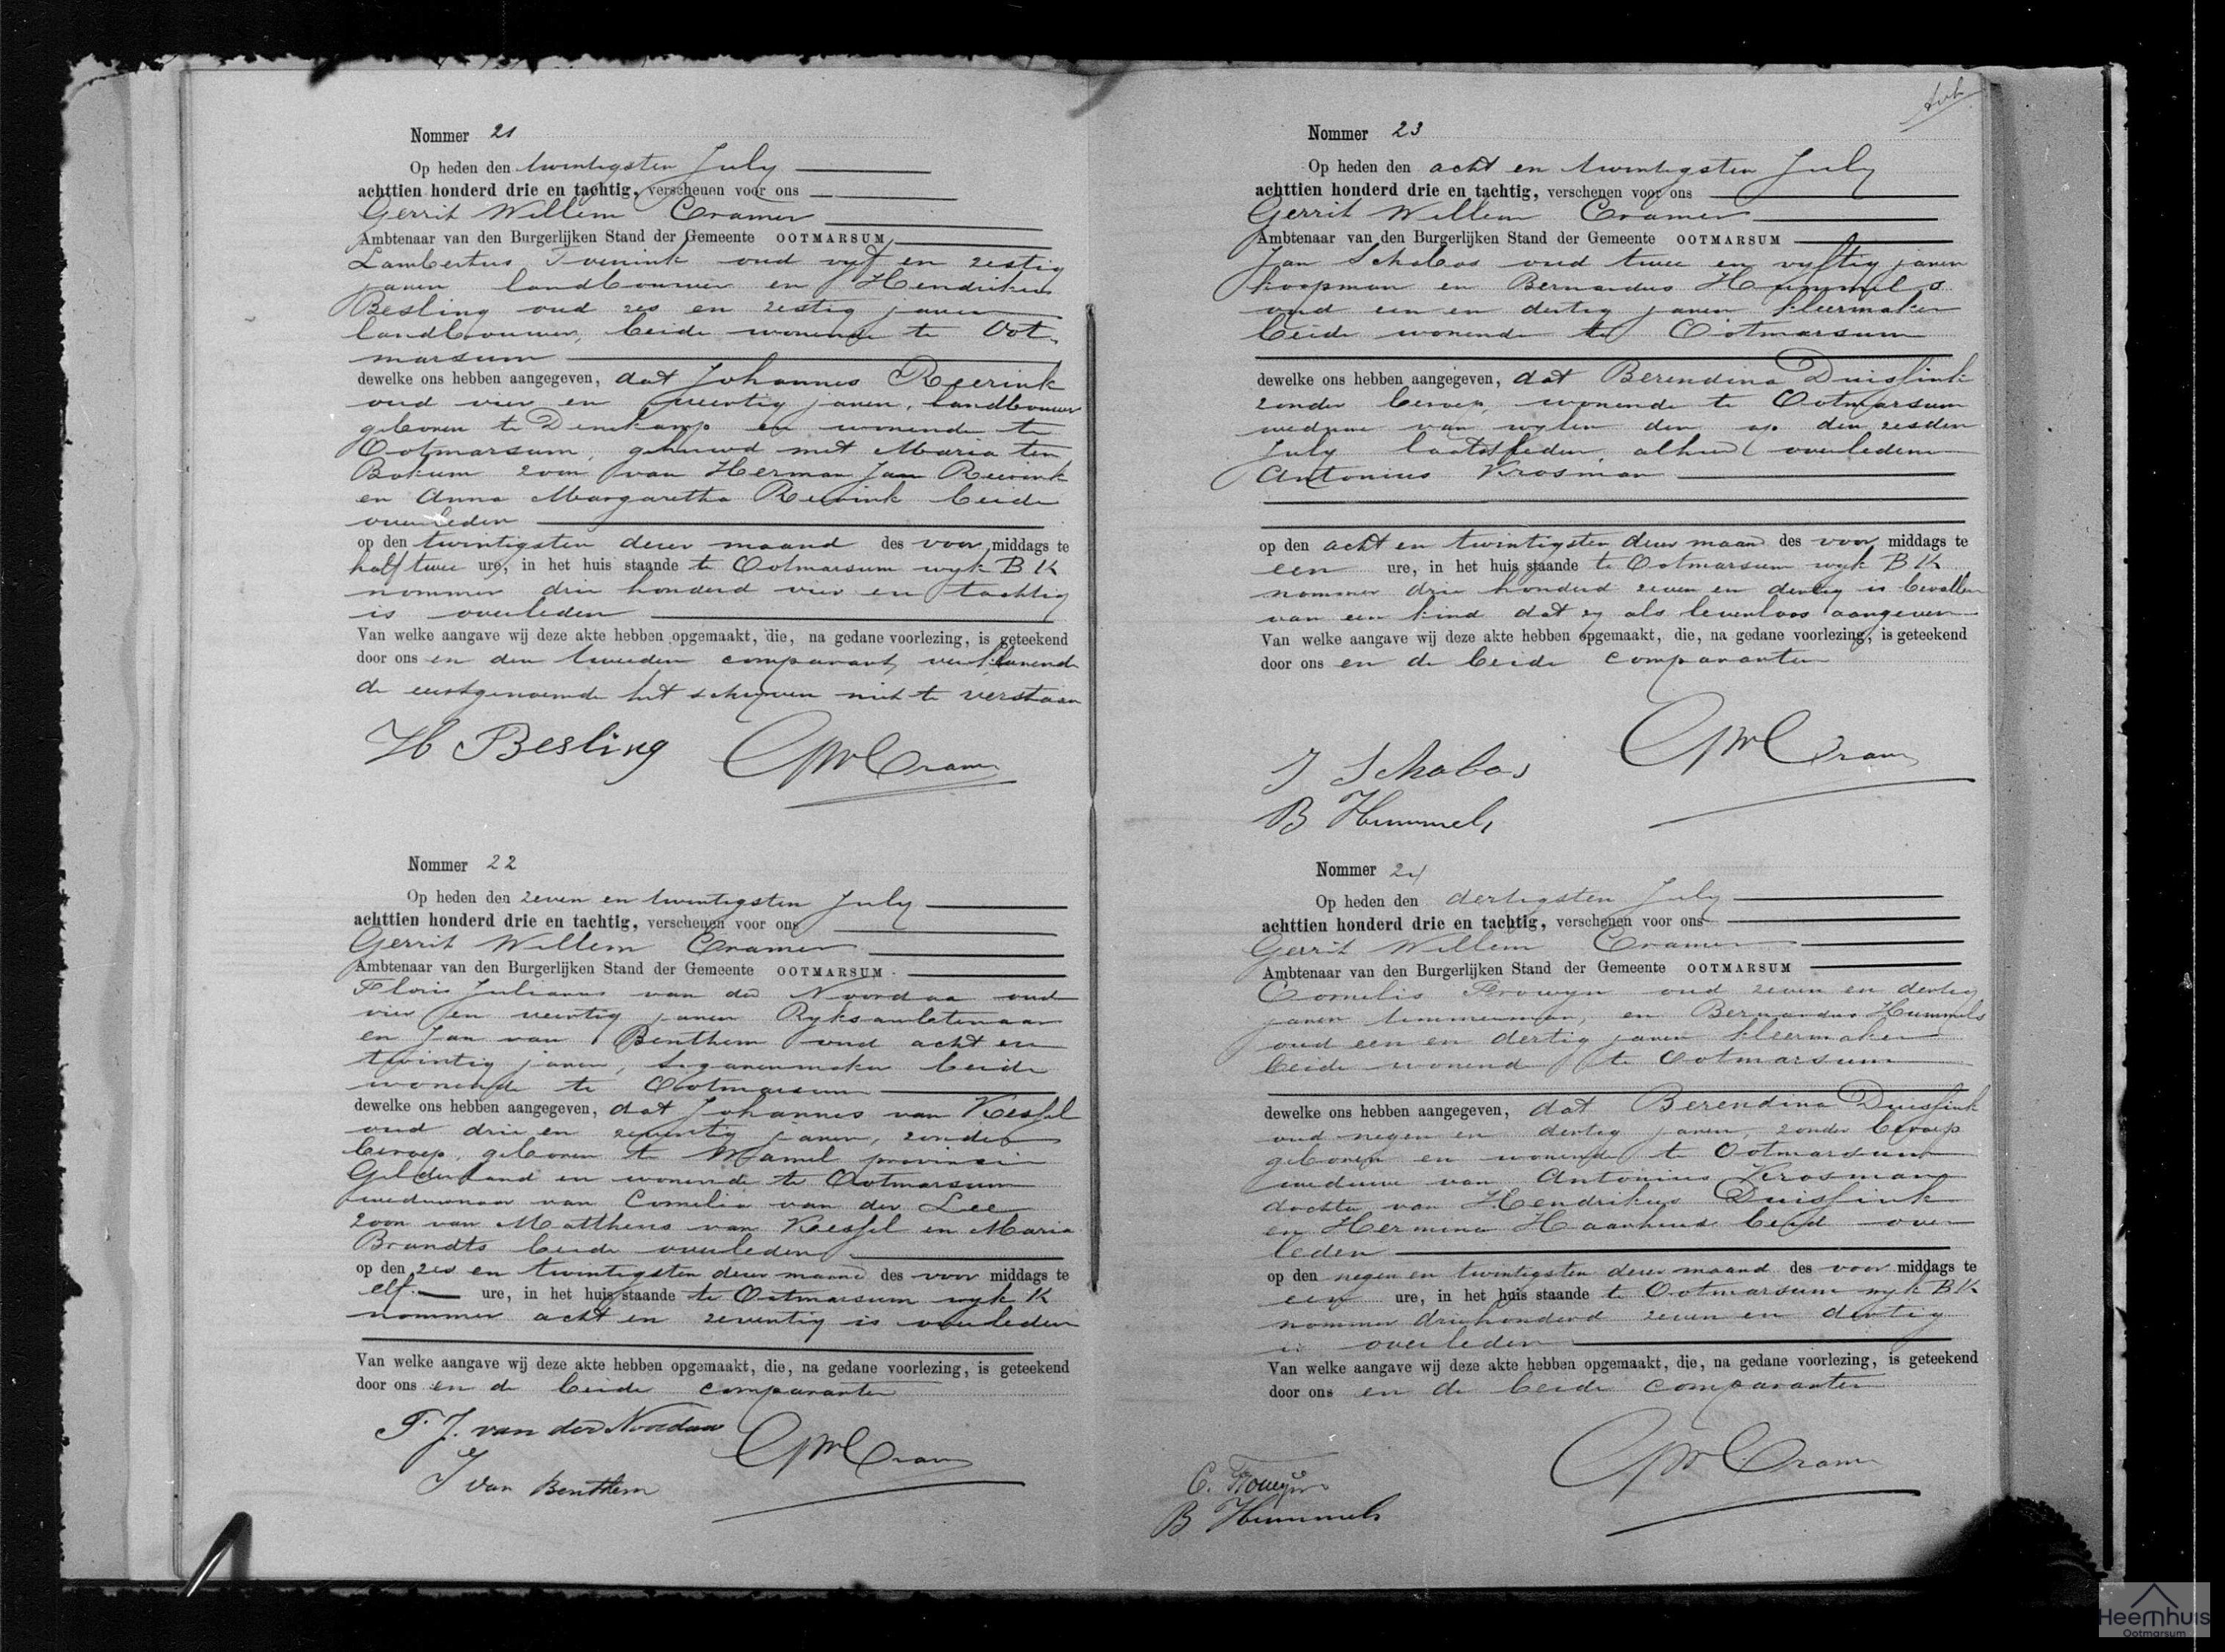 Nommer 21
Op heden den twintigsten July
achttien honderd drie en tachtig, verschenen voor ons
Gerrit Willem Cramer
Ambtenaar van den Burgerlijken Stand der Gemeente OOTMARSUM
Lambertus oud vyf en zestig
jaren landbouwer en Hendrikus
Besling oud zes en zestig jaren
landbouwer, beide wonende te Oot-
marsum
dewelke ons hebben aangegeven, dat Johannes Reerink
oud vier en jaren, landbouwer
geboren te Denekamp en wonende te
Ootmarsum, gehuwd met Maria ten
Bokum zoon van Herman Jan Reerink
en Anna Margaretha Reerink beide
overleden
op den twintigsten dezer maand des voor middags te
half twee ure, in het huis staande te Ootmarsum wyk B K
nommer drie honderd vier en tachtig
is overleden
Van welke aangave wij deze akte hebben opgemaakt, die, na gedane voorlezing, is geteekend
door ons en den tweeden comparant, verklarende
de eerstgenoemde het schryven niet te verstaan
H Besling GWCramer
Nommer 22
Op heden den zeven en twintigsten July
achttien honderd drie en tachtig, verschenen voor ons
Gerrit Willem Cramer
Ambtenaar van den Burgerlijken Stand der Gemeente OOTMARSUM
Floris Julianus van der Noordaa oud
vier en veertig jaren Ryksambtenaar
en Jan van Benthem oud acht en
twintig jaren, sigarenmaker beide
wonende te Ootmarsum
dewelke ons hebben aangegeven, dat Johannes van Kessel
oud drie en zeventig jaren, zonder
beroep, geboren te provincie
Gelderland en wonende te Ootmarsum
weduwnaar van Cornelia van der Lee
zoon van Mattheus van Kessel en Maria
Brandts beide overleden
op den zes en twintigsten dezer maand des voor middags te
elf ure, in het huis staande te Ootmarsum wyk K
nommer acht en zeventig is overleden
Van welke aangave wij deze akte hebben opgemaakt, die, na gedane voorlezing, is geteekend
door ons en de beide comparanten
F. J. van der Noordaa GWCramer
J van Benthem
Nommer 23
Op heden den acht en twintigsten July
achttien honderd drie en tachtig, verschenen voor ons
Gerrit Willem Cramer
Ambtenaar van den Burgerlijken Stand der Gemeente OOTMARSUM
Jan Schabos oud twee en vyftig jaren
koopman en Bernardus Hummels
oud een en dertig jaren kleermaker
beide wonende te Ootmarsum
dewelke ons hebben aangegeven, dat Berendina Duisfink
zonder beroep, wonende te Ootmarsum
weduwe van wylen den op den zesden
July laatstleden alhier overleden
Antonius Krosman
op den acht en twintigsten dezer maand des voor middags te
een ure, in het huis staande te Ootmarsum wyk B K
nommer drie honderd zeven en dertig is bevallen
van een kind dat zy als levenloos aangeven
Van welke aangave wij deze akte hebben opgemaakt, die, na gedane voorlezing, is geteekend
door ons en de beide comparanten
GWCramer
J Schabos
B Hummels
Nommer 24
Op heden den dertigsten July
achttien honderd drie en tachtig, verschenen voor ons
Gerrit Willem Cramer
Ambtenaar van den Burgerlijken Stand der Gemeente OOTMARSUM
Cornelis Frowyn oud zeven en dertig
jaren timmerman, en Bernardus Hummels
oud een en dertig jaren kleermaker
beide wonend te Ootmarsum
dewelke ons hebben aangegeven, dat Berendina Duisfink
oud negen en dertig jaren, zonder beroep
geboren en wonende te Ootmarsum
weduwe van Antonius Krosman
dochter van Hendrikus Duisfink
en Hermina Haarhuis beid over
leden
op den negen en twintigsten dezer maand des voor middags te
een ure, in het huis staande te Ootmarsum wyk B K
nommer driehonderd zeven en dertig
is overleden
Van welke aangave wij deze akte hebben opgemaakt, die, na gedane voorlezing, is geteekend
door ons en de beide comparanten
GWCramer
C. Frowyn
B Hummels
Heemhuis
Ootmarsum